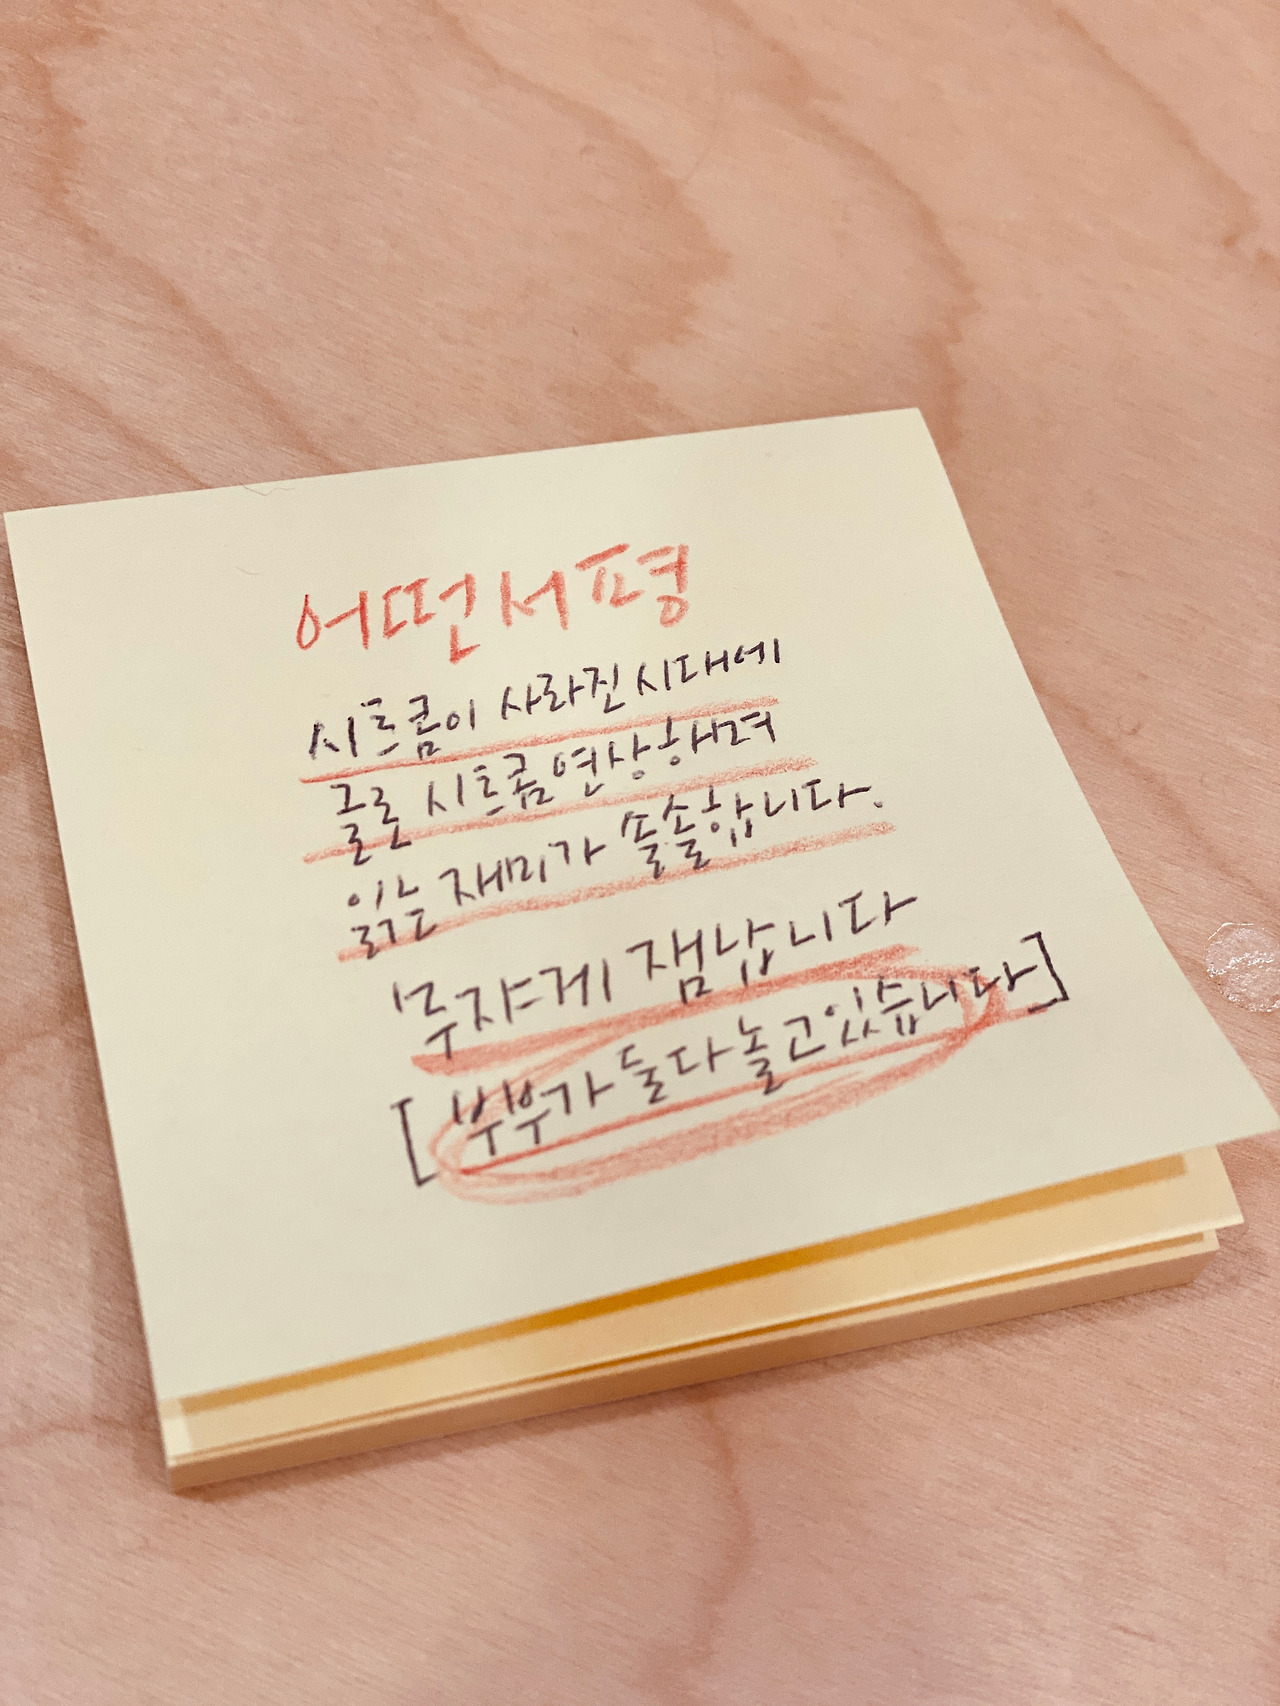 어떤 서평
시트콤이 사라진 시대에
글로 시트콤 연상하며
읽는 재미가 쏠쏠합니다.
무쟈게 잼납니다
[부부가 둘 다 놀고 있습니다]